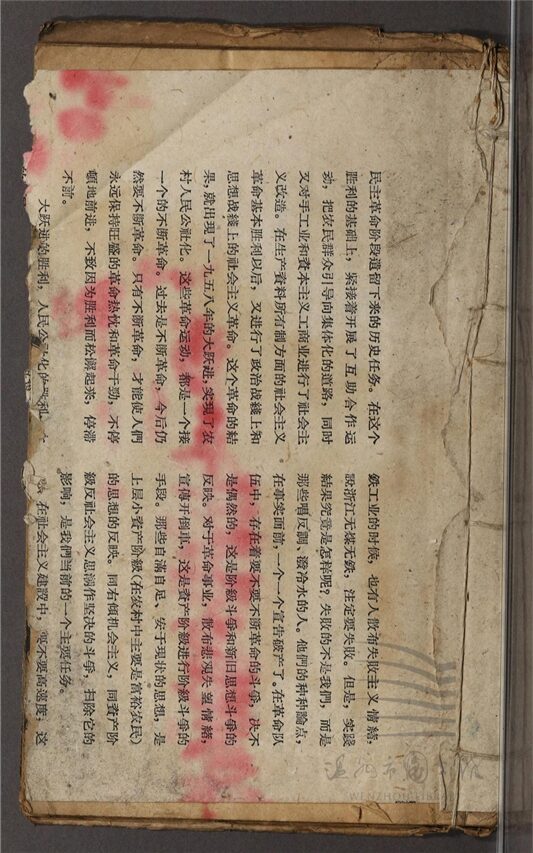 民主革命阶段遺留下来的历史任务。在这个
胜利的基础上，紧接着开展了互助合作运
动，把农民群众引导向集体化的道路，同时
又对手工业和資本主义工商业进行了社会主
义改造。在生产資料所有制方面的社会主义
革命基本胜利以后，又进行了政治战綫上和
思想战綫上的社会主义革命。这个革命的結
果，就出现了一九五八年的大跃进，实现了农
村人民公社化。这些革命运动，都是一个接
一个的不断革命。过去是不断革命，今后仍
然要不断革命。只有不断革命，才能使人們
永远保持旺盛的革命热忱和革命干劲，不停
頓地前进，不致因为胜利而松懈起来，停滞
不前。
大跃进的胜利，人民公社化的胜利
鉄工业的时候，也有人散布失敗主义情緒，
說浙江无煤无鉄，注定要失敗。但是，实踐
結果究竟是怎样呢？失敗的不是我們，而是
那些唱反調、潑冷水的人。他們的种种論点，
在事实面前，一个一个宣告破产了。在革命队
伍中，存在着要不要不断革命的斗爭，决不
是偶然的，这是阶級斗爭和新旧思想斗爭的
反映。对于革命事业，散布悲观失望情緒，
宣傳开倒車，这是資产阶級进行阶級斗爭的
手段。那些自滿自足、安于现状的思想，是
上层小資产阶級（在农村中主要是富裕农民）
的思想的反映。同右傾机会主义，同資产阶
級反社会主义思潮作坚决的斗爭，扫除它的
影响，是我們当前的一个主要任务。
在社会主义建設中，要不要高速度，这
温州市圖書館
WENZHOU LIBRARY